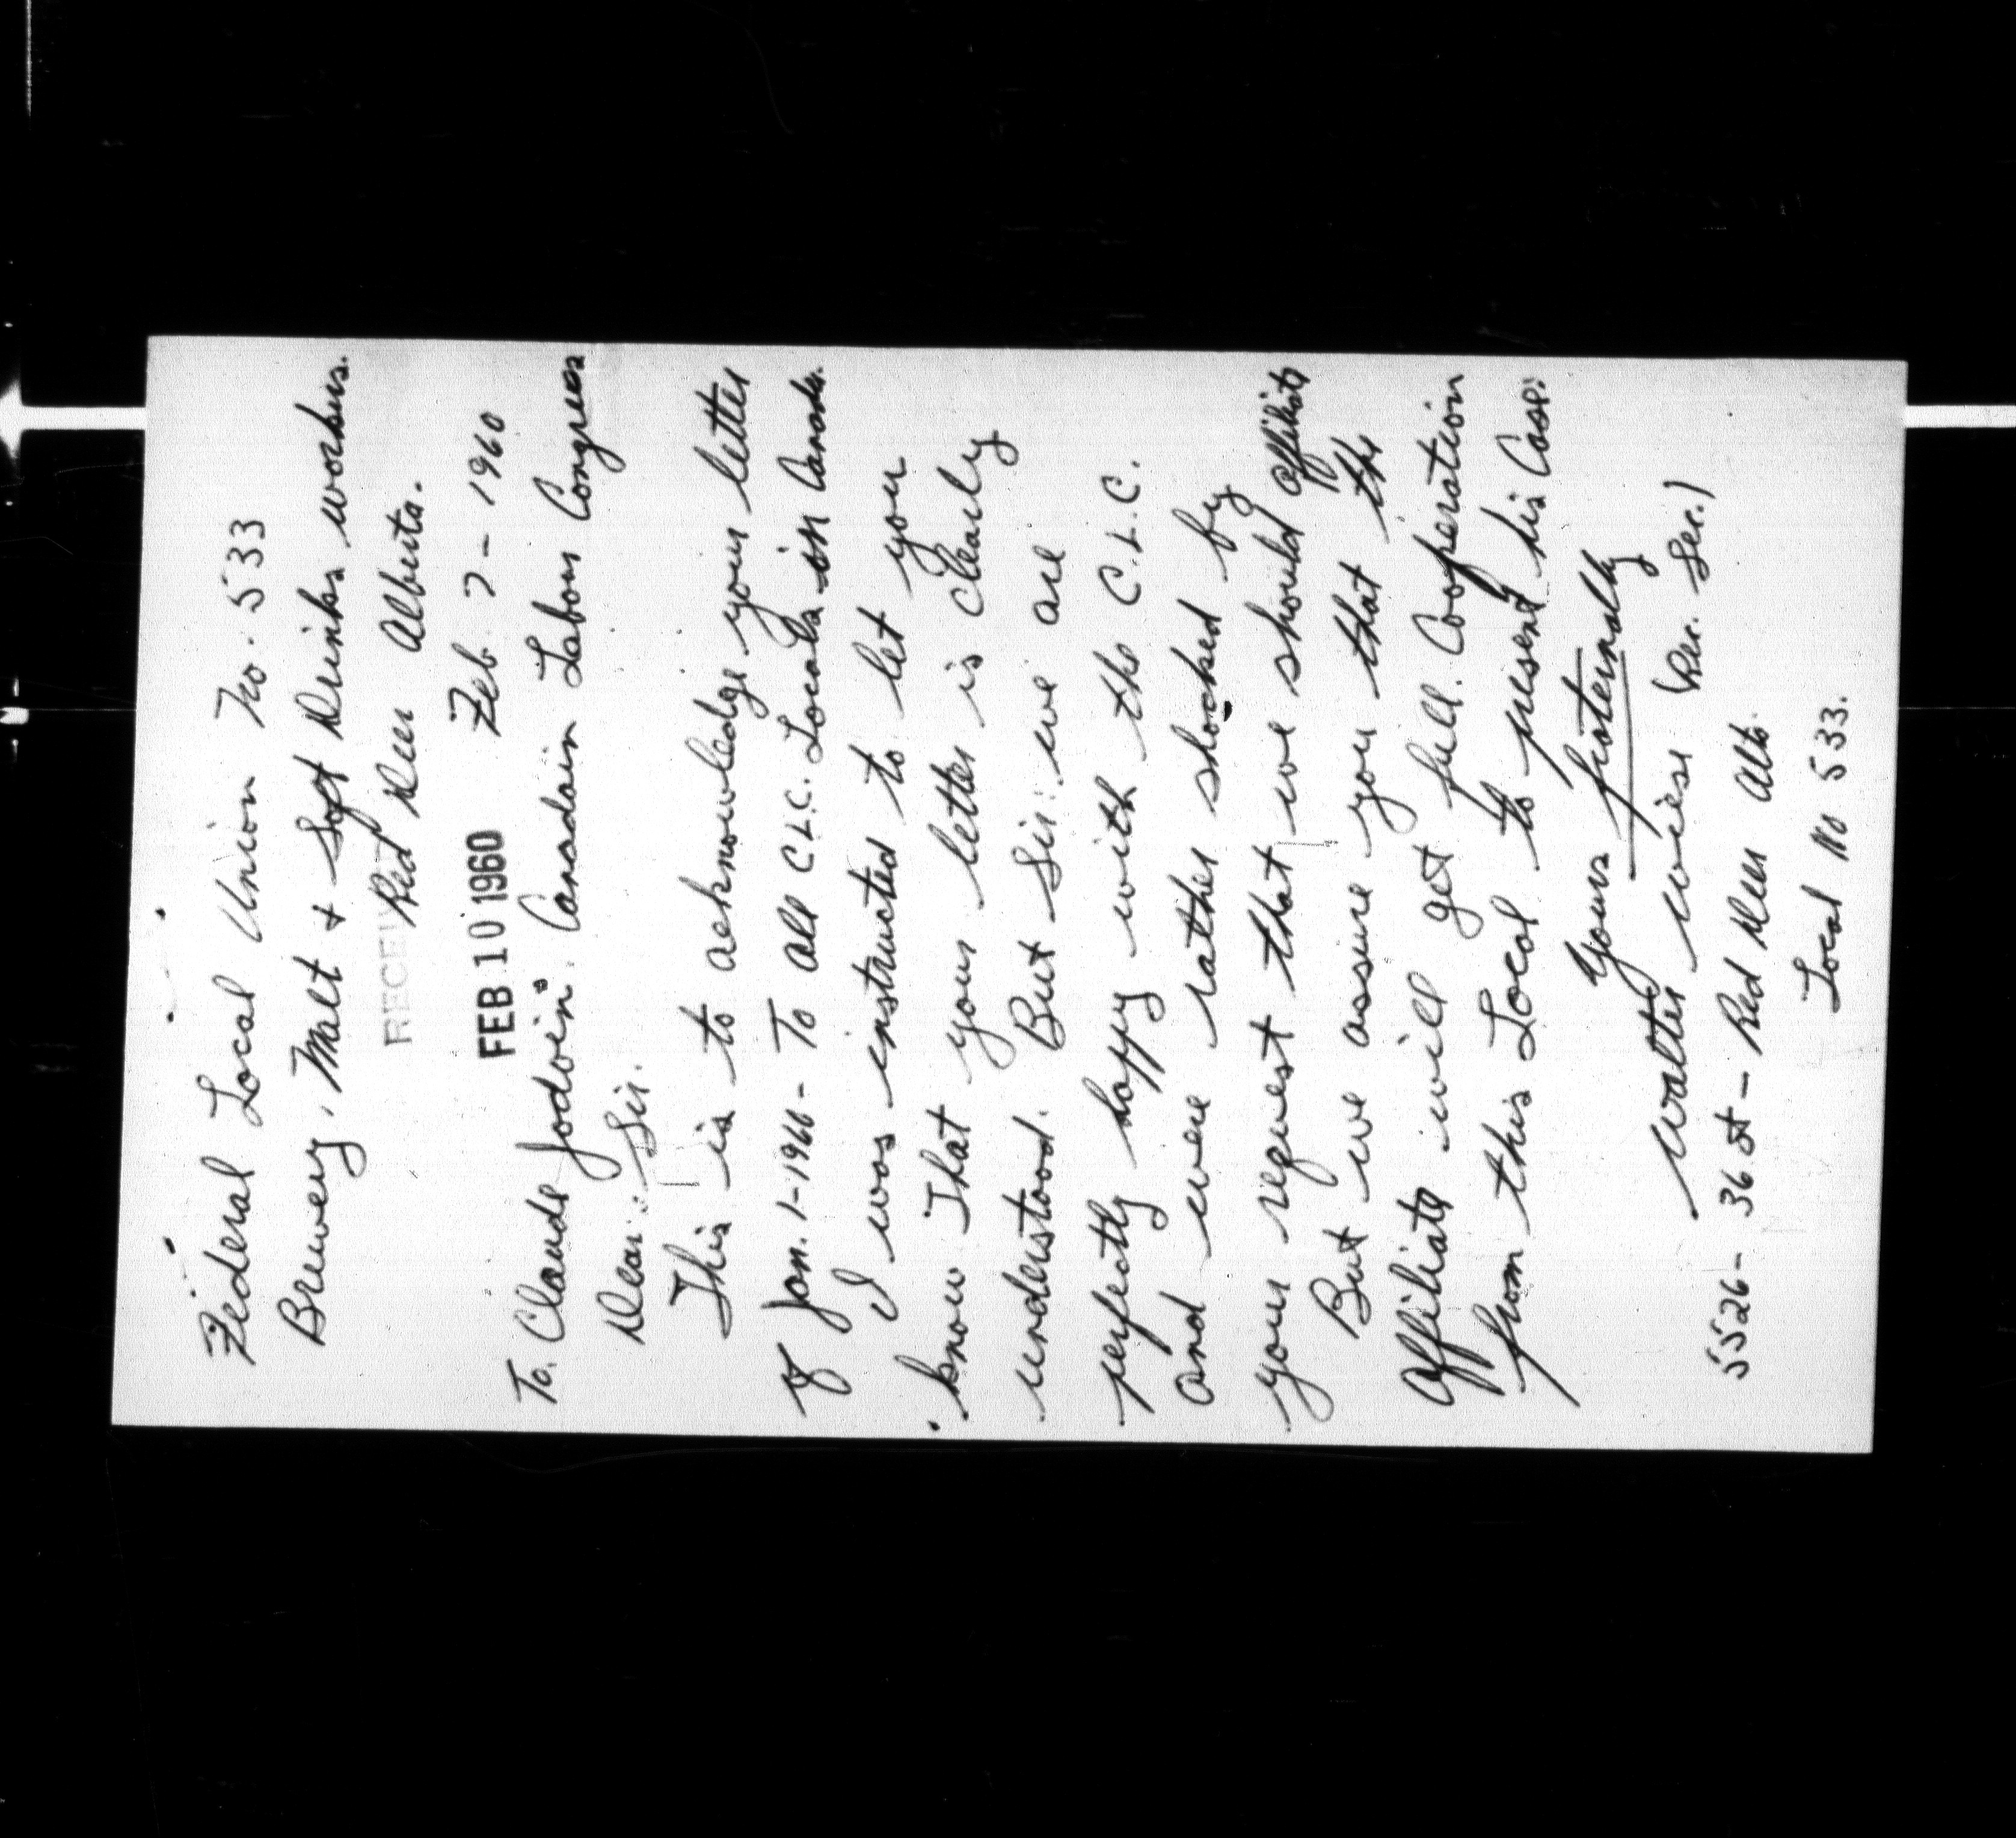 Federal Local Union No. 533
Brewery, Malt & Soft Drinks workers.
RECEIV Red Deer Alberta.
FEB 10 1960 Feb. 7 - 1960
To. Claude Jodoin. Canadain Labour Congress
Dear: Sir.
This is to acknowledge your letter
of Jan. 1-1960- To All C.L.C. Locals in Canada.
I was instructed to let you
know That your letter is clearly
understood. But Sir: we are
perfectly happy with the C.L.C.
and were rather shocked by
your request that we should affiliate
But we assure you that the
affiliate will get full Cooperation
from this Local to present his Case.
Yours fraternally
Walter Wiese (Rec. Sec.)
5526- 36 St - Red Deer Alb.
Local No 533.